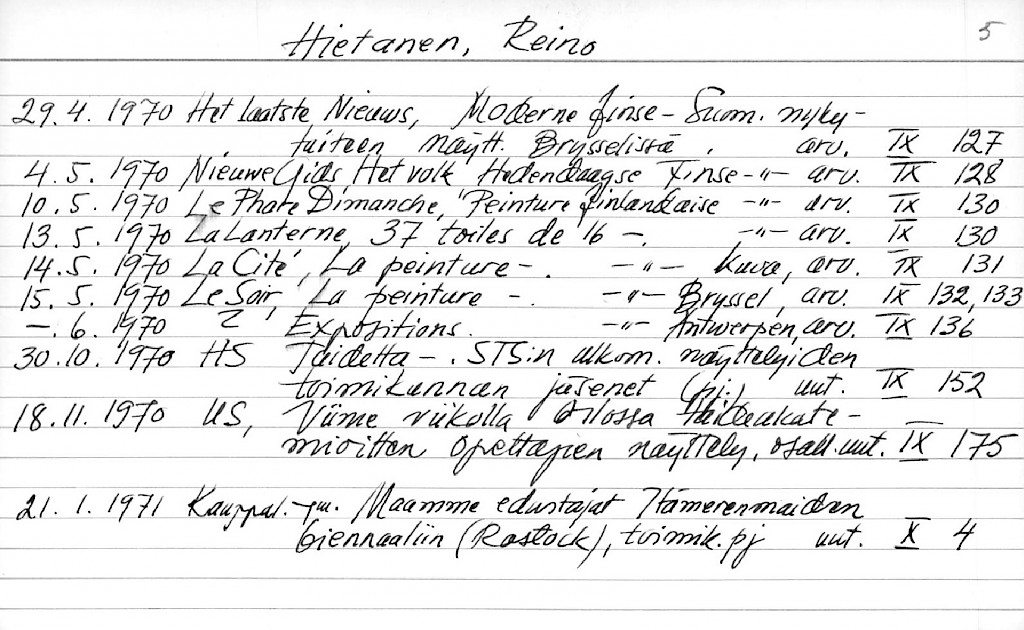 Hietanen, Reino 5
29.4. 1970 Het Laatste Nieuws, Moderne finse- Suom. nyky-
taiteen näytt. Brysselissä . arv. IX 127
4.5. 1970 Nieuwe Gids, Het volk Hedendaagse Finse -"- arv. IX 128
10.5. 1970 Le Phare Dimanche, Peinture finlandaise -"- arv. IX 130
13.5. 1970 La Lanterne, 37 toiles de 16 -. -"- arv. IX 130
14.5. 1970 La Cité, La peinture -. -"- Kuva, arv. IX 131
15.5. 1970 Le Soir, La peinture -. -"- Bryssel, arv. IX 132, 133
-.6. 1970 ? Expositions. -"- Antwerpen, arv. IX 136
30.10. 1970 HS Taidetta -. STS:n ulkom. näyttelyiden
toimikunnan jäsenet (pj.) uut. IX 152
18.11. 1970 US, Viime viikolla Oslossa taideakate-
mioitten opettajien näyttely, osall. uut. IX 175
21.1. 1971 Kauppal. -. Maamme edustajat Itämerenmaiden
biennaaliin (Rostock), toimik. pj uut. X 4